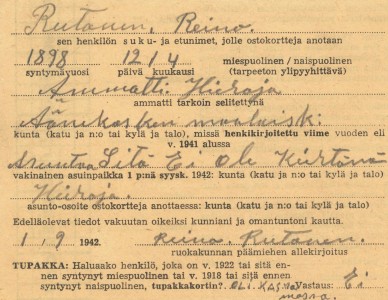 Rutanen, Reino.
sen henkilön suku- ja etunimet, jolle ostokortteja anotaan
1898 12/4 miespuolinen / naispuolinen
syntymävuosi päivä kuukausi (tarpeeton ylipyyhittävä)
Ammatti: Hieroja
ammatti tarkoin selitettynä
Äänekosken maalaisk:
kunta (katu ja n:o tai kylä ja talo), missä henkikirjoitettu viime vuoden eli
v. 1941 alussa
Asuntoa Sitä Ei Ole
vakinainen asuinpaikka 1 p:nä syysk. 1942: kunta (katu ja n:o tai kylä ja talo)
Hieroja.
asunto-osoite ostokortteja anottaessa: kunta (katu ja n:o tai kylä ja talo)
Edelläolevat tiedot vakuutan oikeiksi kunniani ja omantuntoni kautta.
1 / 9 1942. Reino. Rutanen.
ruokakunnan päämiehen allekirjoitus
TUPAKKA: Haluaako henkilö, joka on v. 1922 tai sitä en-
nen syntynyt miespuolinen tai v. 1918 tai sitä ennen
syntynyt naispuolinen, tupakkakortin? Vastaus: Ei